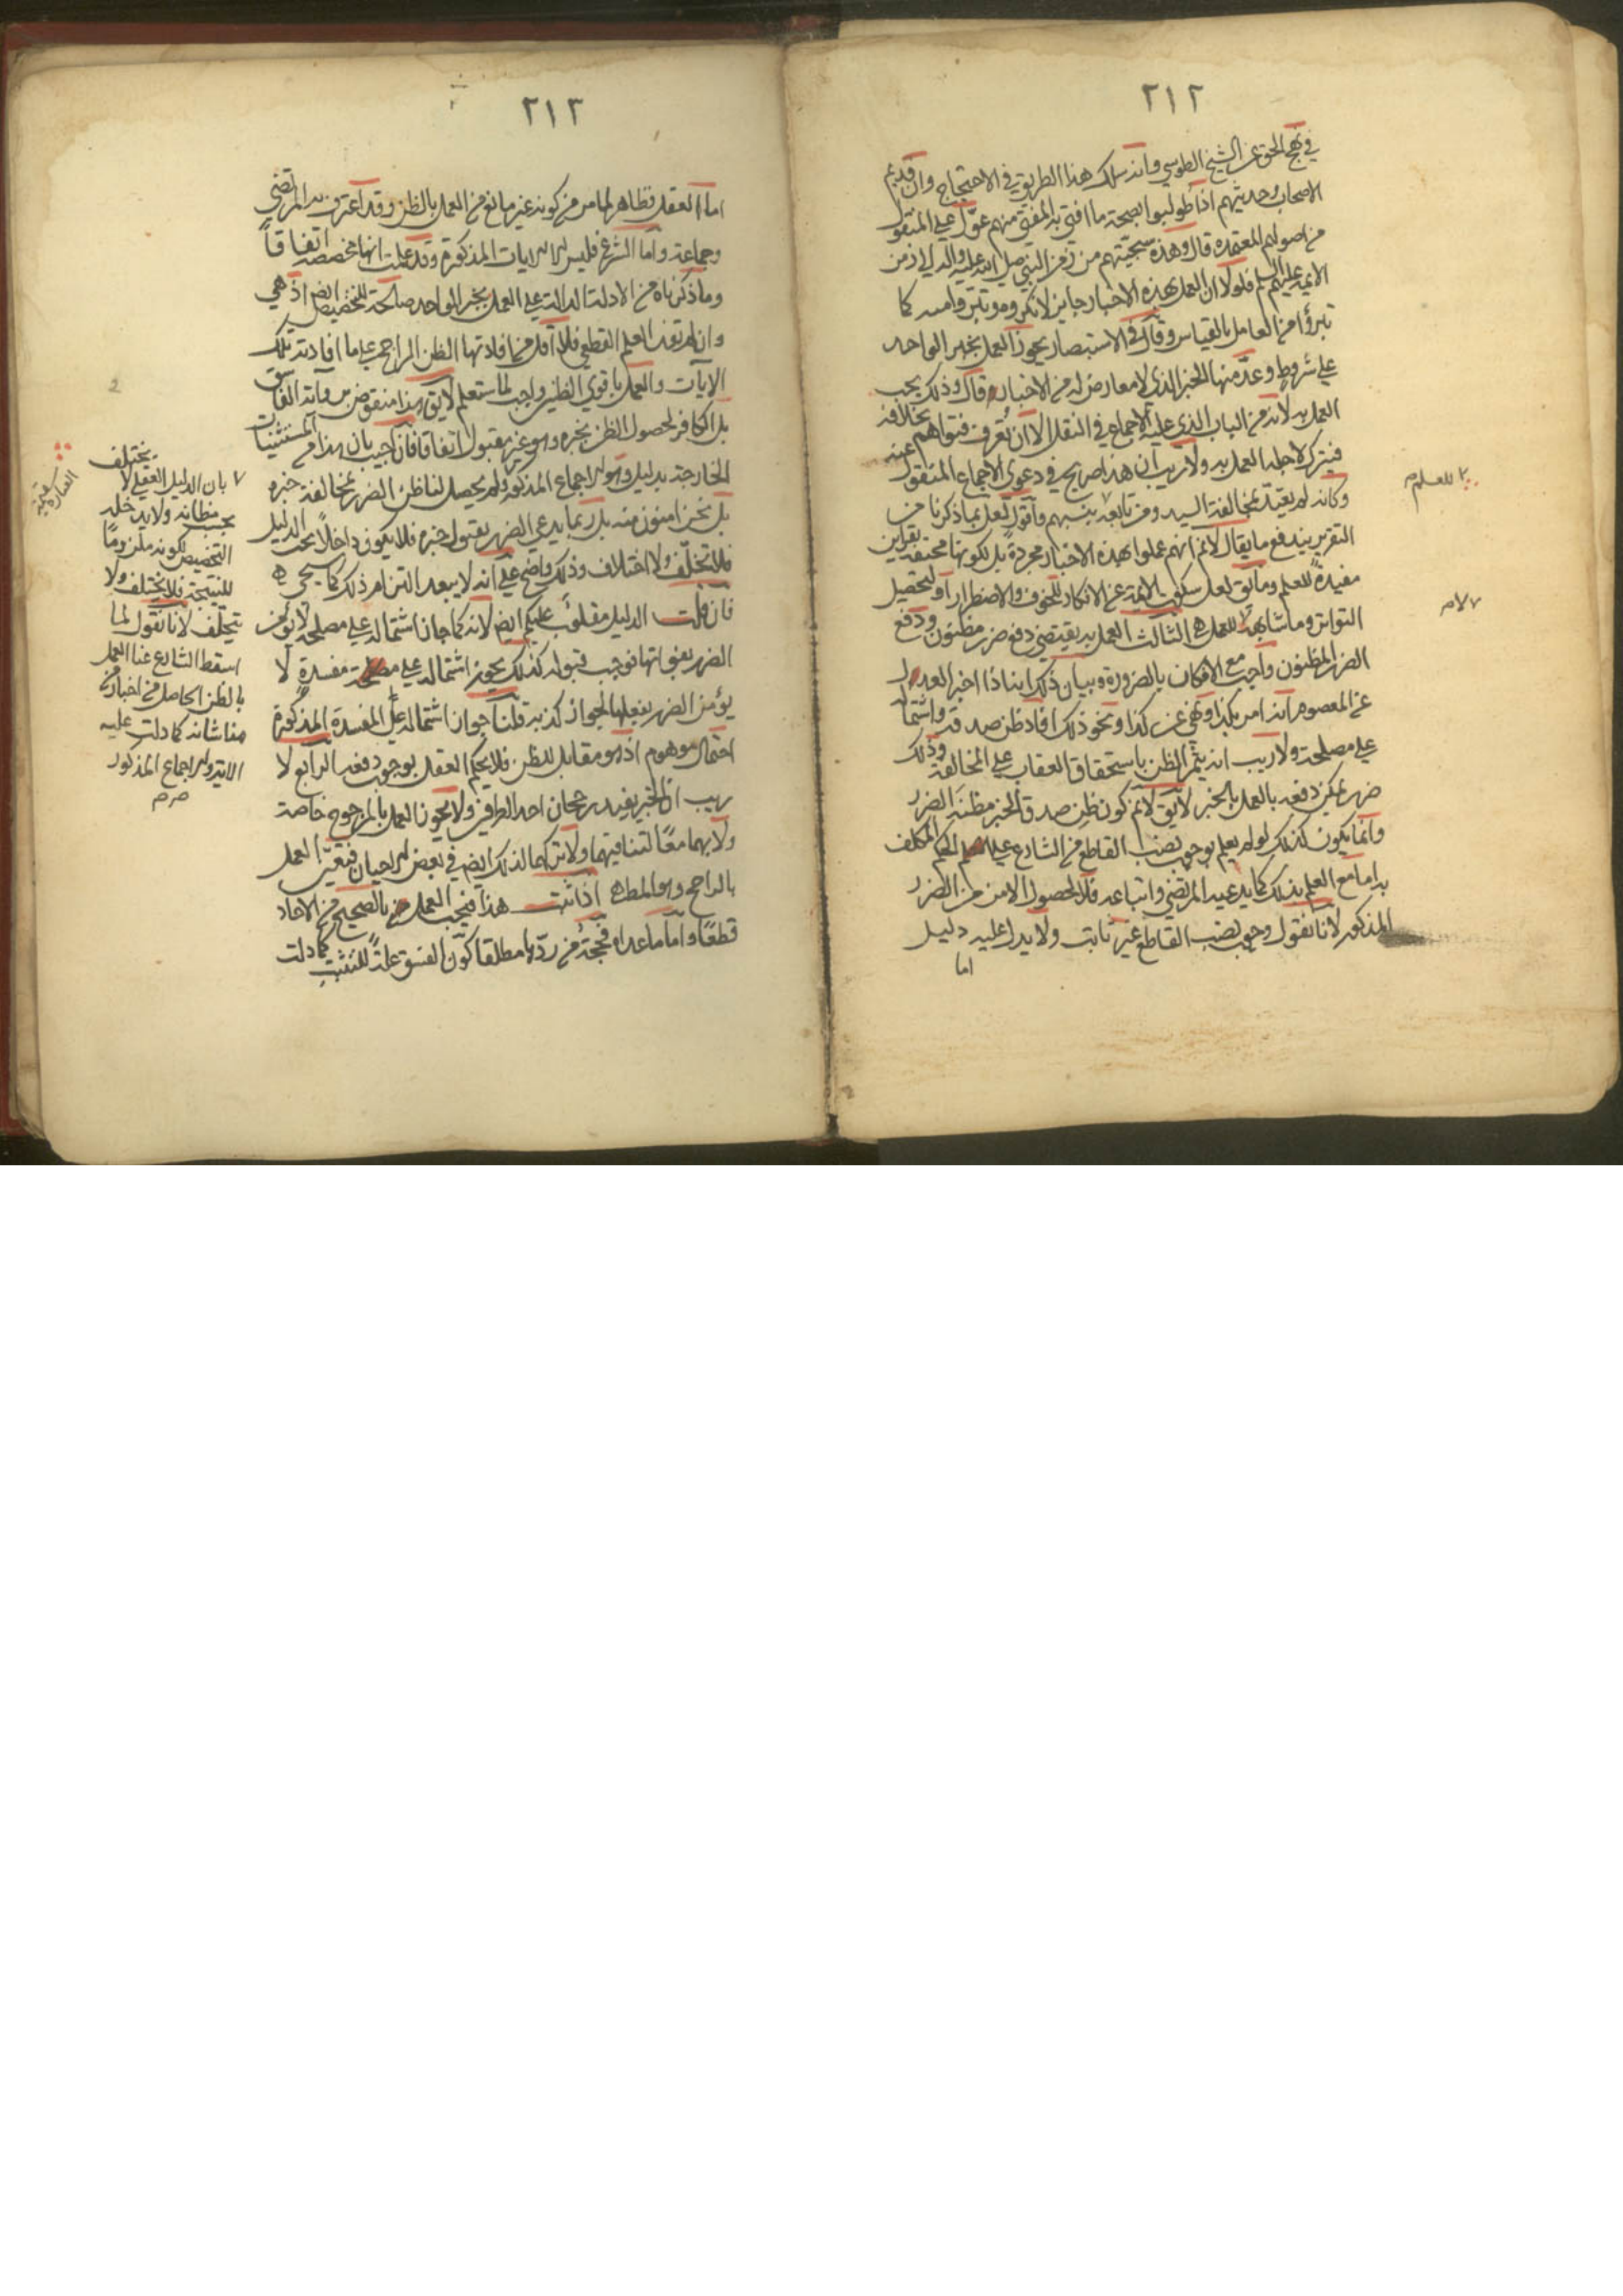 ٢١٢
في نهج الحق عن الشيخ الطوسي وانه سلك هذا الطريق في الاحتجاج وان قديم
الاصحاب وحديثهم اذا طولبوا بصحة ما افتى به المفتي منهم عول على المنقول
من اصولهم المعتمدة قال وهذه سجيتهم من زمن النبي صلى الله عليه واله الى زمن
الايمة عليهم السلم فلولا ان العمل بهذه الاخبار جايز لانكروه وتبرؤا منه كما
تبرؤا من العامل بالقياس وقال في الاستبصار يجوز العمل بخبر الواحد
على شروط وعد منها الخبر الذي لا معارض له من الاخبار قال وذلك يجب
العمل به لانه من الباب الذي عليه الاجماع في النقل الا ان تعرف فتواهم بخلافه
فيترك لاجلها العمل به ولا ريب ان هذا صريح في دعوى الاجماع المنقول عنه
وكانه لم يعتد بمخالفة السيد ومن تابعه بينهم واقول لعل بما ذكرنا من
التقرير يندفع ما يقال لا نم انهم عملوا بهذه الاخبار مجردة بل لكونها محتفة بقراين
مفيدة للعلم وما يق لعل سكوت الايمة عن الانكار للخوف والاضطرار او لتحصيل
التواتر وما شابهه للعمل الثالث العمل به يقتضي دفع ضرر مظنون ودفع
الضرر المظنون واجب مع الامكان بالضرورة وبيان ذلك انا اذا اخبر العدل
عن المعصوم انه امر بكذا ونهى عن كذا ونحو ذلك افاد ظن صدقه واشتماله
على مصلحة ولا ريب انه يثمر الظن باستحقاق العقاب على المخالفة وذلك
ضرر يمكن دفعه بالعمل بالخبر لا يق لا نم كون ظن صدق الخبر مظنة الضرر
وانما يكون كذلك لو لم يعلم بوجوب نصب القاطع من الشارع على الحكم المكلف
به اما مع العلم بذلك كما يدعيه المرتضى واتباعه فلا لحصول الامن من الضرر
المذكور لانا نقول وجوب نصب القاطع غير ثابت ولا يدل عليه دليل
اما
للعلم
٢١٣
اما العقل فظاهر لما مر من كونه غير مانع من العمل بالظن وقد اعترف به المرتضى
وجماعة واما الشرع فليس الا الايات المذكورة وقد علمت انها مخصصة اتفاقاً
وما ذكرناه من الادلة الدالة على العمل بخبر الواحد صالحة للتخصيص ايض اذ هي
وان لم تفد العلم القطعي فلا اقل من افادتها الظن الراجح على ما افادته تلك
الايات والعمل باقوى الظنين واجب لما ستعلم لا يق هذا منقوض برواية الفاسق
بل الكافر لحصول الظن بخبره وهو غير مقبول اتفاقا فان اجيب بان هذا من المستثنيات
الخارجة بدليل وهو الاجماع المذكور ولم يحصل لنا ظن الضرر بمخالفة خبره
بل نحن امنون منه بل ربما يدعى الضرر بقبول خبره فلا يكون داخلاً تحت الدليل
فلا تخلف ولا اختلاف وذلك واضح على انه لا يبعد التزام ذلك كما سيجي
فان قلت الدليل مقلوب عليكم ايض لانه كما جاز اشتماله على مصلحة لا يؤمن
الضرر بفواتها فوجب قبوله كذلك يجوز اشتماله على مفسدة لا
يؤمن الضرر بفعلها لجواز كذبه قلنا جواز اشتماله على المفسدة المذكورة
احتمال موهوم اذ هو مقابل للظن فلا يحكم العقل بوجوب دفعه الرابع لا
ريب ان الخبر يفيد رجحان احد الطرفين ولا يجوز العمل بالمرجوح خاصة
ولا بهما معًا لتنافيهما ولا تركهما لذلك ايض في بعض الاحيان فتعين العمل
بالراجح وهو المط اذا ثبت هذا فيجب العمل بالصحيح من الاحاد
قطعًا واما ما عداه فحجة من رده مطلقا كون الفسق علة للتثبت كما دلت
بان الدليل العقلي لا يختلف
بحسب مظانه ولا يدخله
التخصيص لكونه ملزومًا
للنتيجة فلا يختلف ولا
يتخلف لانا نقول لما
اسقط الشارع عنا العمل
بالظن الحاصل من اخبار من
هذا شانه كما دلت عليه
الاية والاجماع المذكور